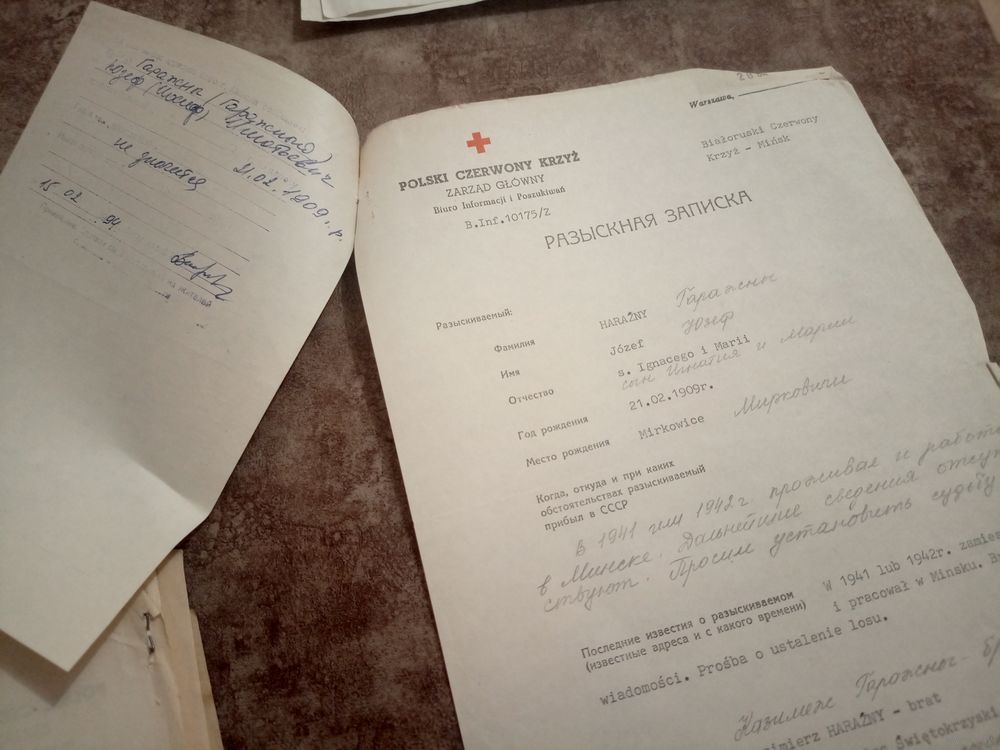 Гаражны (Гаражной)
Юзеф (Иосиф) Игнатьевич
21.02.1909 г.р.
не значится
15 02. 94
Warszawa,
POLSKI CZERWONY KRZYŻ
ZARZĄD GŁÓWNY
Biuro Informacji i Poszukiwań
B.Inf.10175/Z
Białoruski Czerwony
Krzyż - Mińsk
РАЗЫСКНАЯ ЗАПИСКА
Разыскиваемый:
Фамилия HARAŹNY Гаражны
Имя Józef Юзеф
Отчество s. Ignacego i Marii
сын Игнатия и Марии
Год рождения 21.02.1909r.
Место рождения Mirkowice Мирковичи
Когда, откуда и при каких
обстоятельствах разыскиваемый
прибыл в СССР
В 1941 или 1942г. проживал и работ
в Минске. Дальнейшие сведения отсут
ствуют. Просим установить судьбу
Последние известия о разыскиваемом W 1941 lub 1942r. zamies
(известные адреса и с какого времени) i pracował w Mińsku. B
wiadomości. Prośba o ustalenie losu.
Казимеж Гаражны - бр
imierz HARAŹNY - brat
więtokrzyski